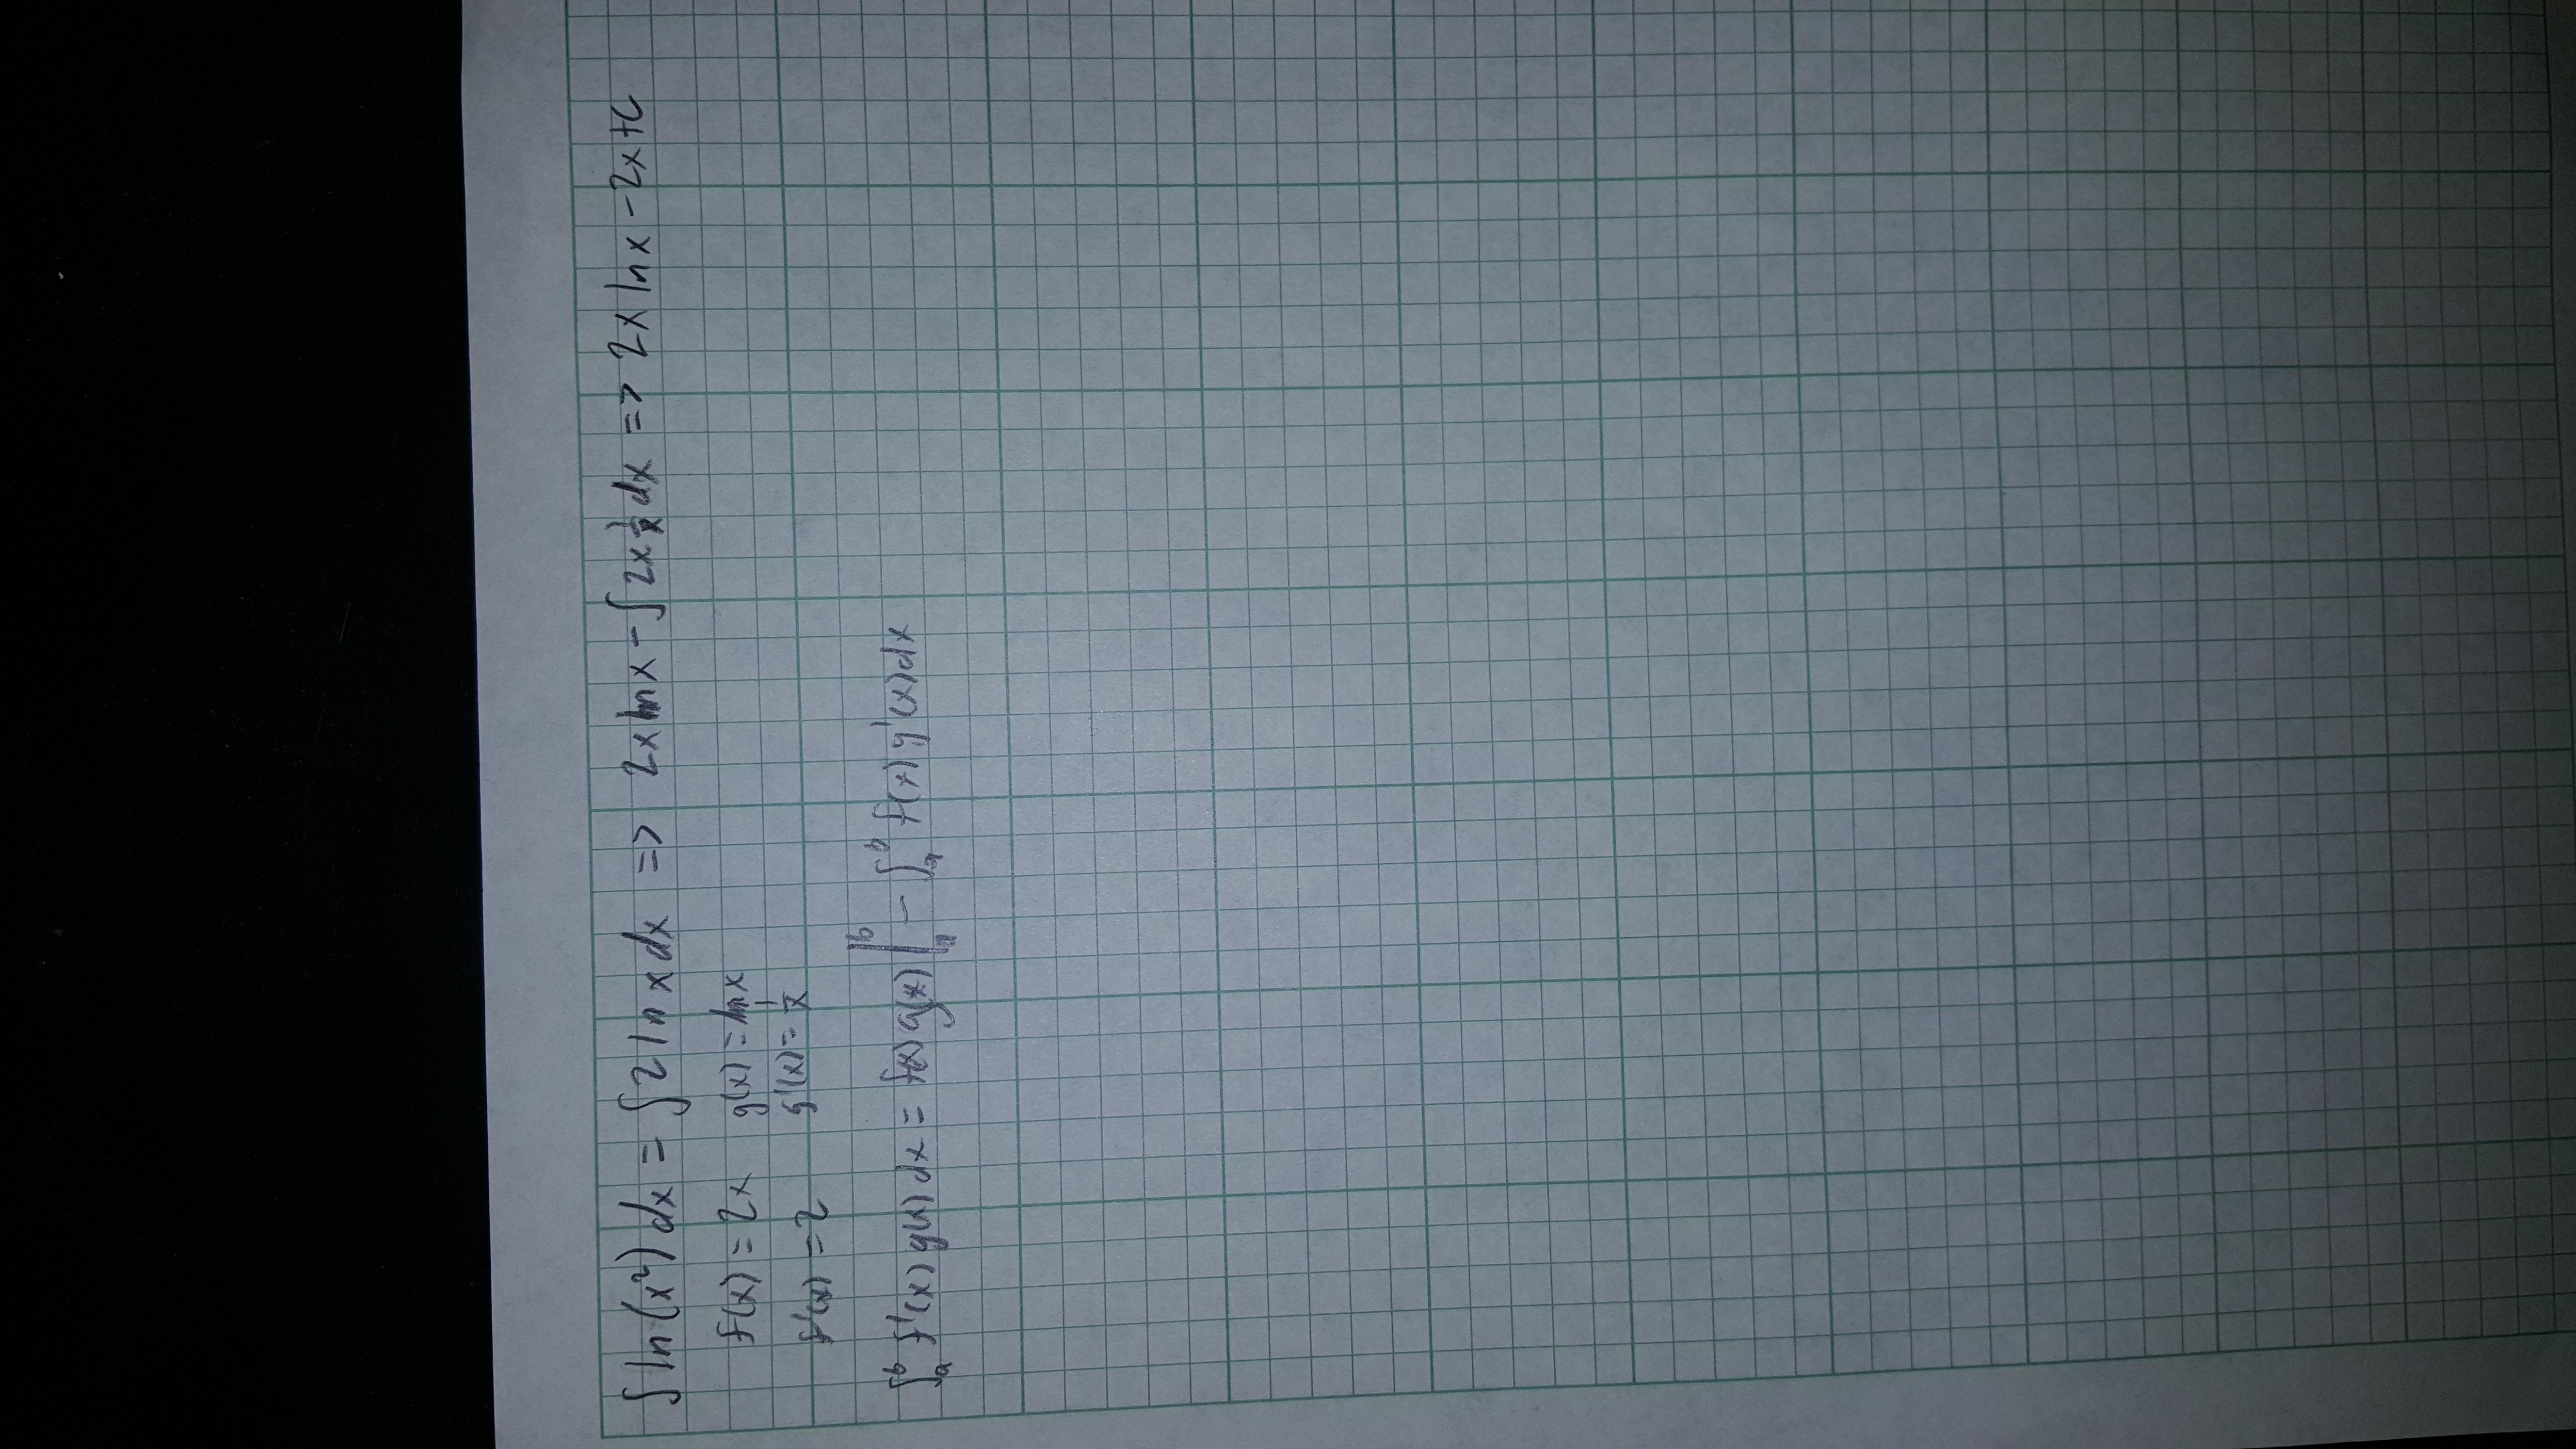 ∫ ln(x²) dx = ∫ 2 ln x dx => 2x ln x - ∫ 2x 1/x dx => 2x ln x - 2x + C
f(x) = 2x g(x) = ln x
f'(x) = 2 g'(x) = 1/x
∫ₐᵇ f'(x) g(x) dx = f(x) g(x) |ₐᵇ - ∫ₐᵇ f(x) g'(x) dx